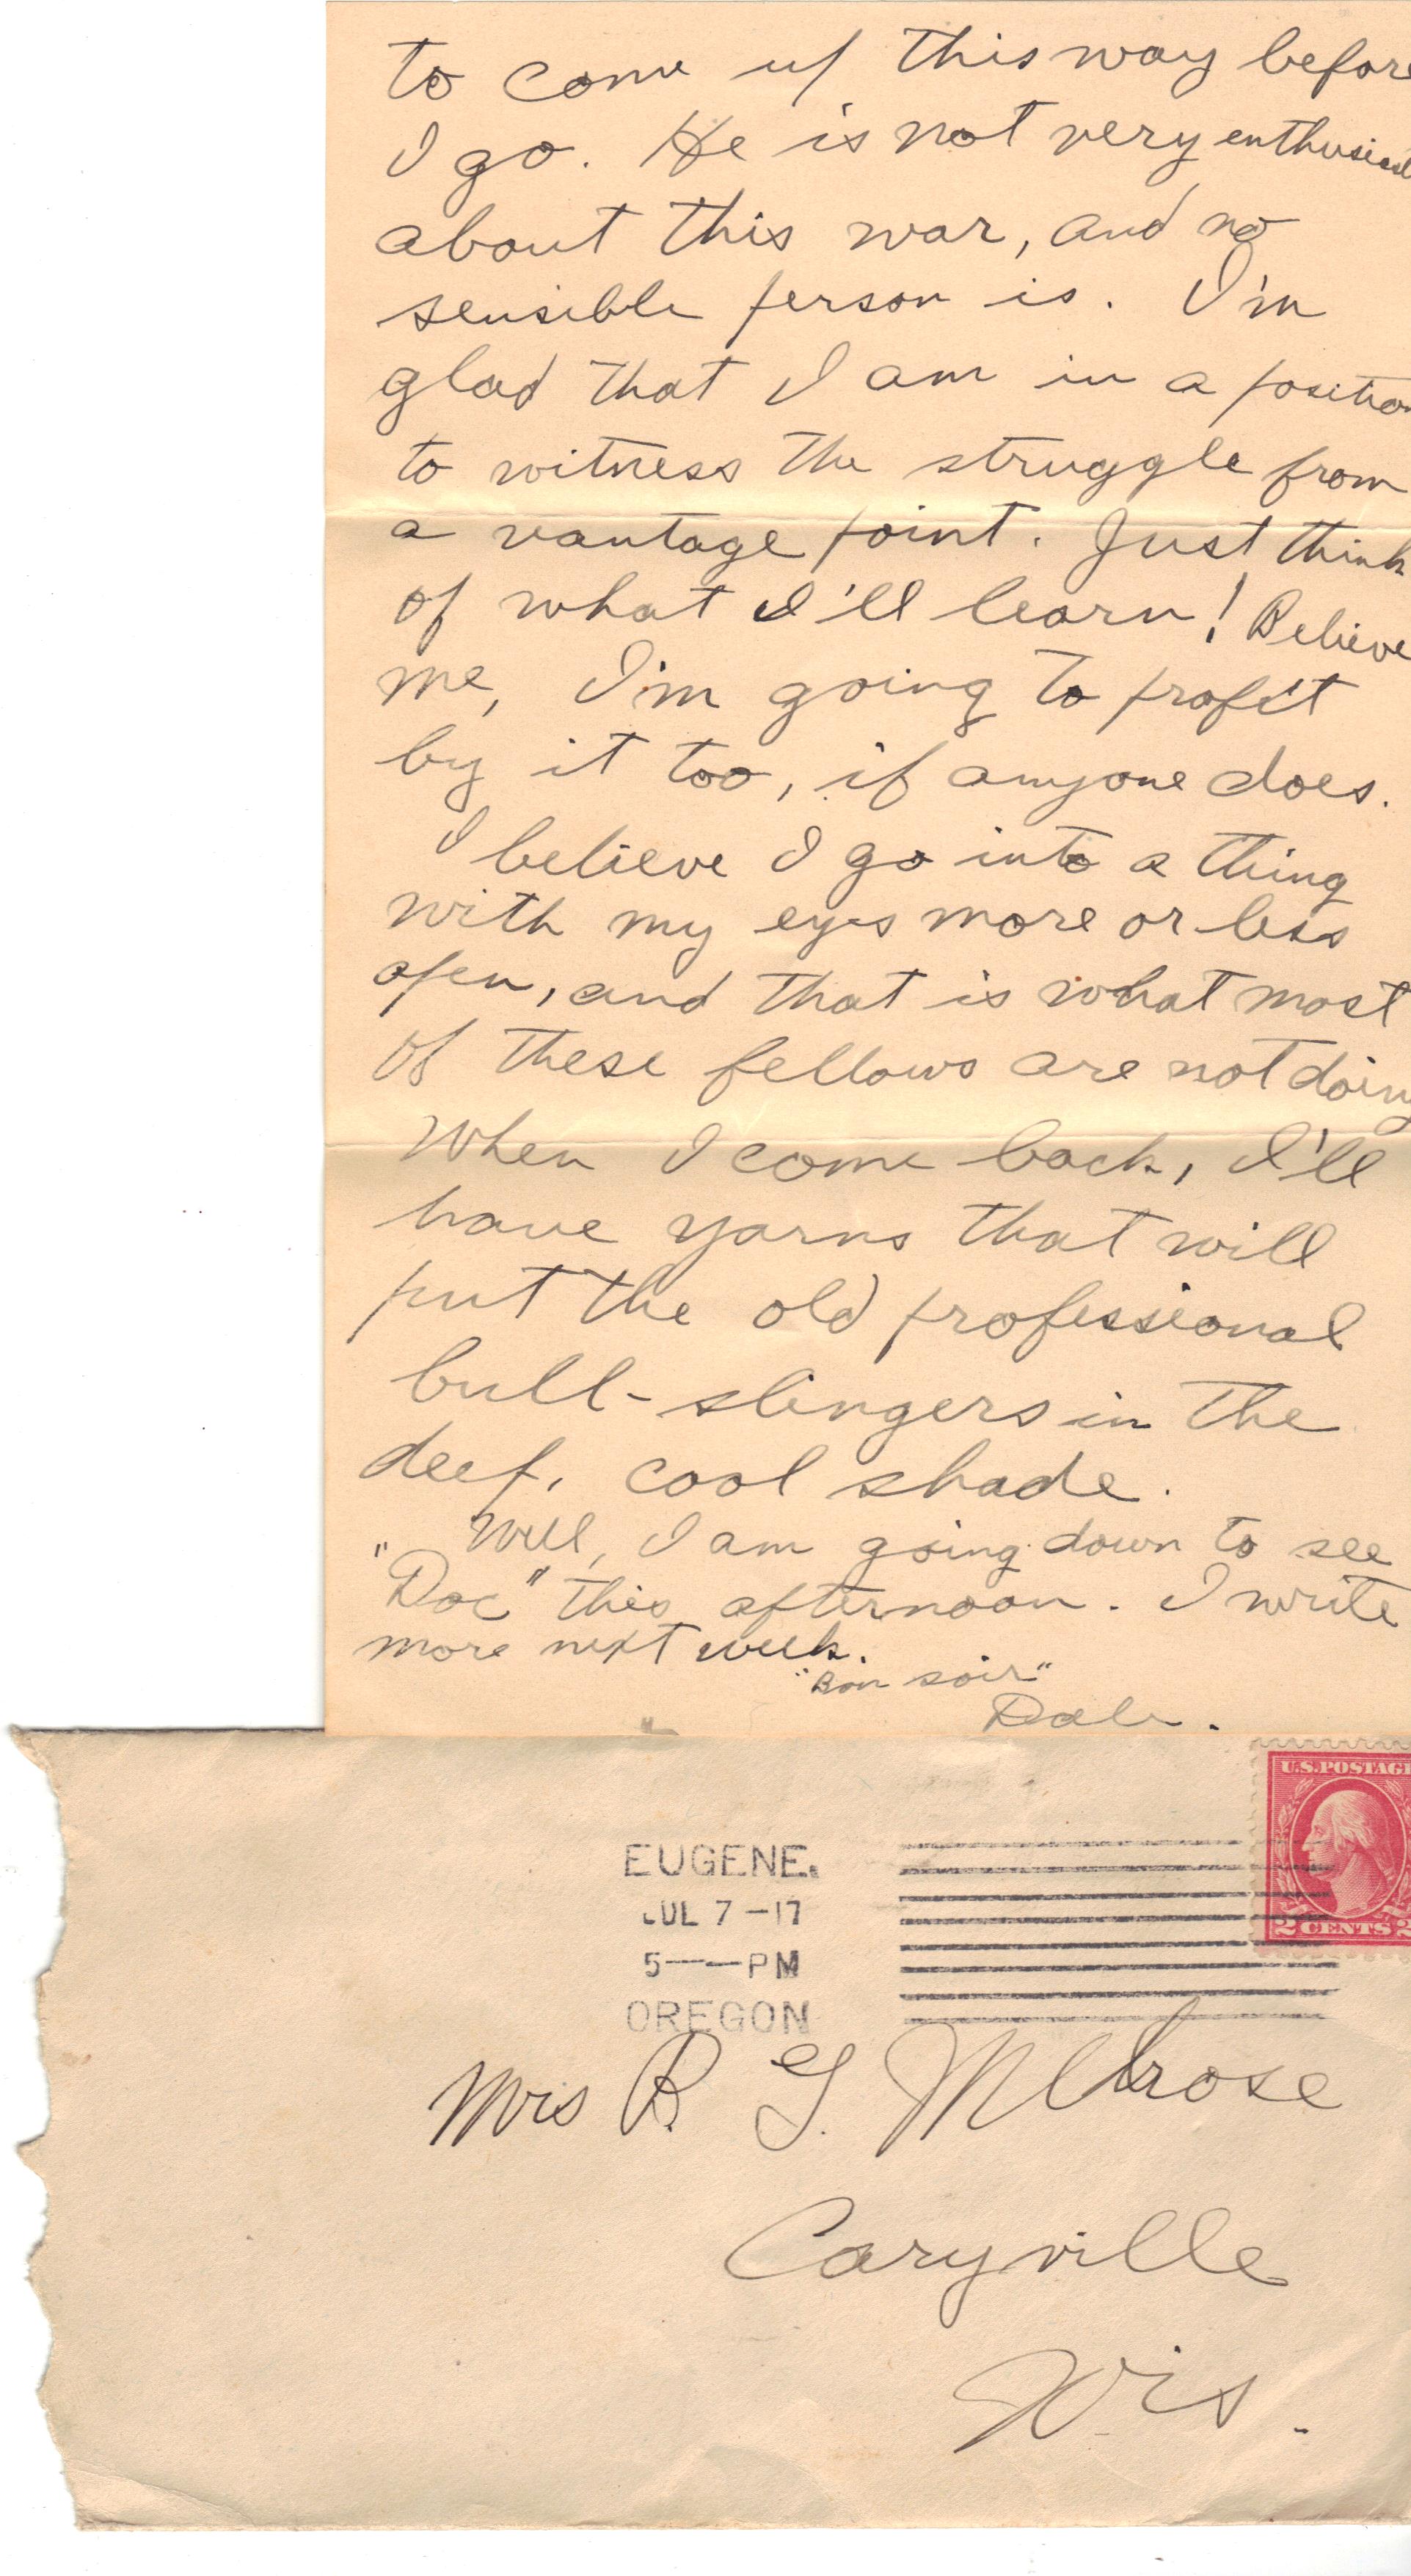 to come up this way before
I go. He is not very enthusias
about this war, and no
sensible person is. I'm
glad that I am in a position
to witness the struggle from
a vantage point. Just think
of what I'll learn! Believe
me, I'm going to profit
by it too, if anyone does.
I believe I go into a thing
with my eyes more or less
open, and that is what most
of these fellows are not doing
When I come back, I'll
have yarns that will
put the old professional
bull-slingers in the
deep, cool shade.
Well, I am going down to see
"Doc" this afternoon. I write
more next week.
"Bon soir"
Dale.
U.S. POSTAGE
2 CENTS 2
EUGENE.
JUL 7 -17
5 -- PM
OREGON
Mrs R. G. Melrose
Caryville
Wis.